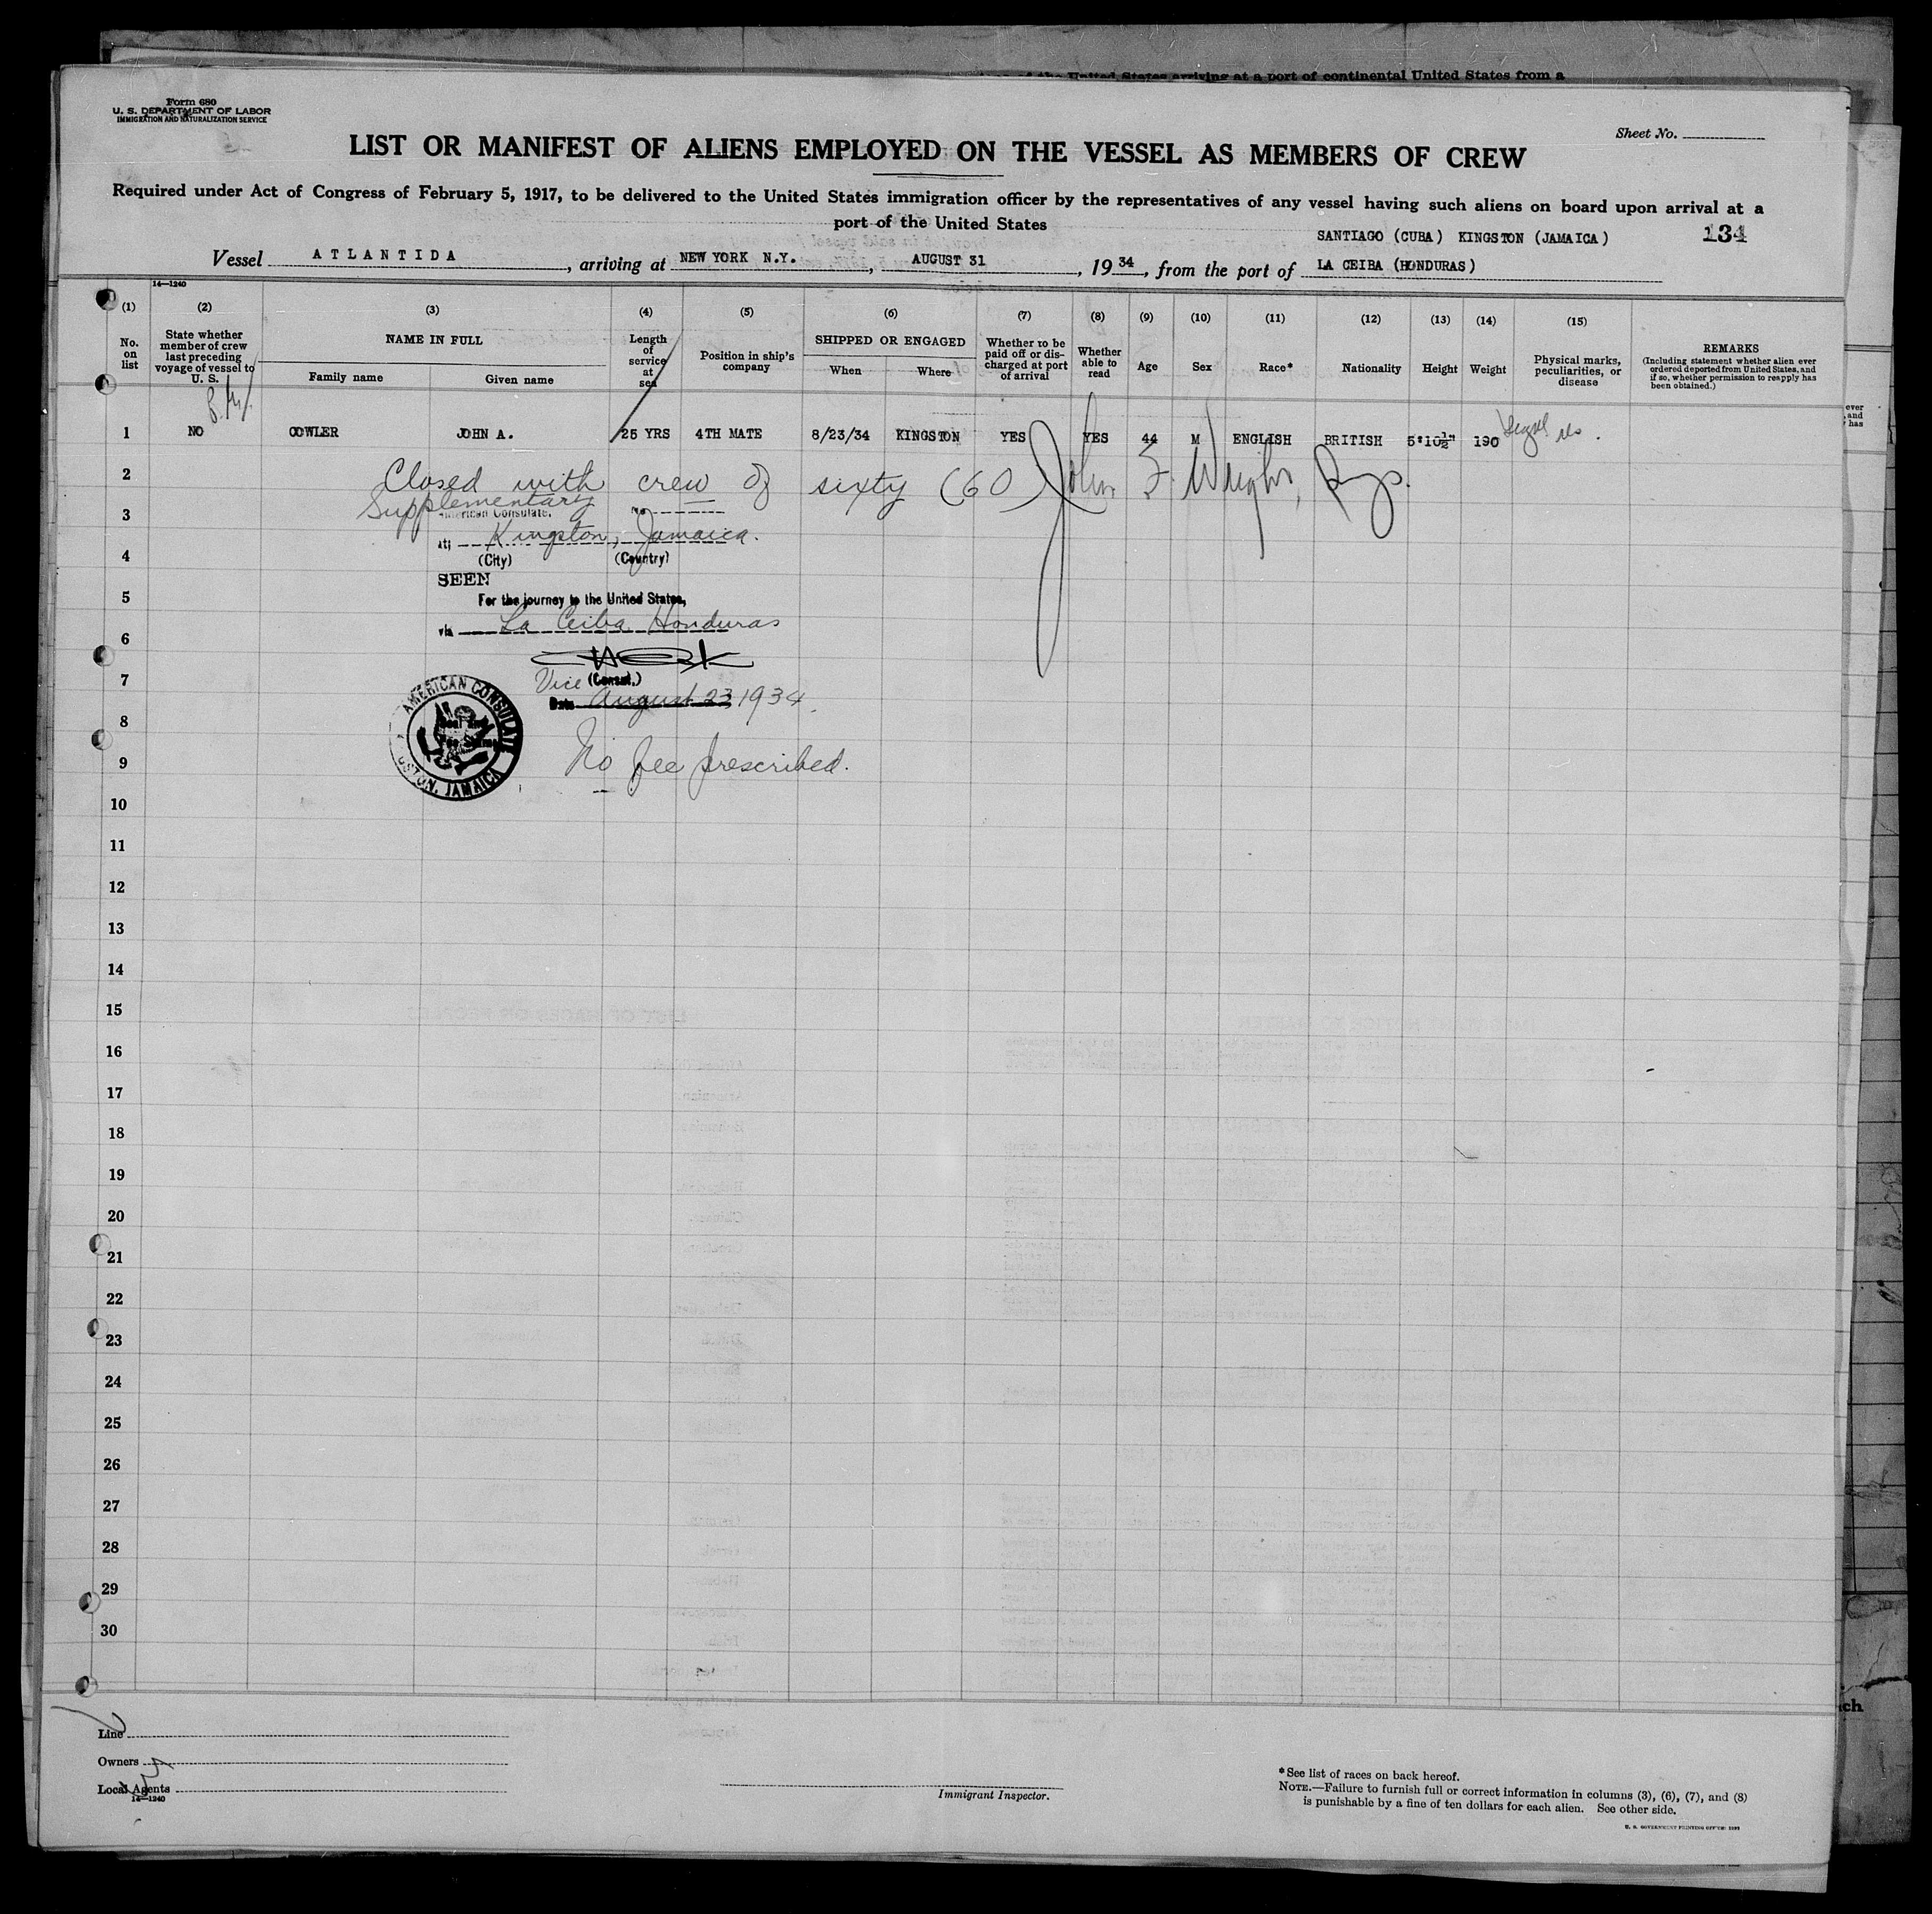 of the United States arriving at a port of continental United States from a
Form 680
U. S. DEPARTMENT OF LABOR
IMMIGRATION AND NATURALIZATION SERVICE
Sheet No.
LIST OR MANIFEST OF ALIENS EMPLOYED ON THE VESSEL AS MEMBERS OF CREW
Required under Act of Congress of February 5, 1917, to be delivered to the United States immigration officer by the representatives of any vessel having such aliens on board upon arrival at a
port of the United States
SANTIAGO (CUBA) KINGSTON (JAMAICA) 134
Vessel ATLANTIDA, arriving at NEW YORK N.Y., AUGUST 31, 1934, from the port of LA CEIBA (HONDURAS)
14—1240
(1) No. on list
(2) State whether member of crew last preceding voyage of vessel to U. S.
(3) NAME IN FULL
Family name Given name
(4) Length of service at sea
(5) Position in ship's company
(6) SHIPPED OR ENGAGED
When Where
(7) Whether to be paid off or discharged at port of arrival
(8) Whether able to read
(9) Age
(10) Sex
(11) Race*
(12) Nationality
(13) Height
(14) Weight
(15) Physical marks, peculiarities, or disease
REMARKS
(Including statement whether alien ever ordered deported from United States, and if so, whether permission to reapply has been obtained.)
ever
and
has
1 NO COWLER JOHN A. 25 YRS 4TH MATE 8/23/34 KINGSTON YES YES 44 M ENGLISH BRITISH 5'10½" 190 Legal res.
2 Closed with crew of sixty (60) John F. Wright,
Supplementary
3 American Consulate, No
at Kingston, Jamaica.
4 (City) (Country)
SEEN
5 For the journey to the United States,
via La Ceiba Honduras
6
7 Vice (Consul.)
Date August 23, 1934.
AMERICAN CONSULATE
GSTON, JAMAICA
8
9 No fee prescribed.
10
11
12
13
14
15
16
17
18
19
20
21
22
23
24
25
26
27
28
29
30
Line
Owners
Local Agents
14—1240
Immigrant Inspector.
*See list of races on back hereof.
NOTE.—Failure to furnish full or correct information in columns (3), (6), (7), and (8)
is punishable by a fine of ten dollars for each alien. See other side.
ch